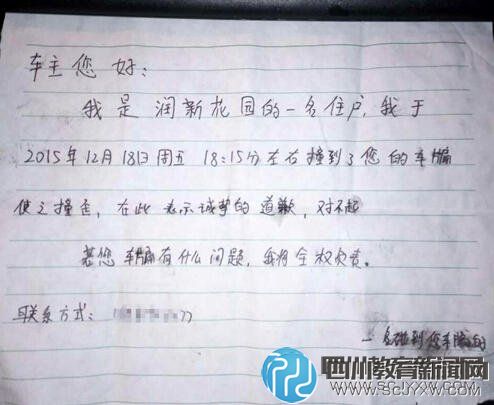 车主您好：
我是润新花园的一名住户,我于
2015年12月18日周五 18:15分左右撞到了您的车
使之撞歪，在此表示诚挚的道歉，对不起
若您车有什么问题，我将全权负责。
联系方式： 77
一名碰到您车的
四川教育新闻网
WWW.SCJYXW.COM